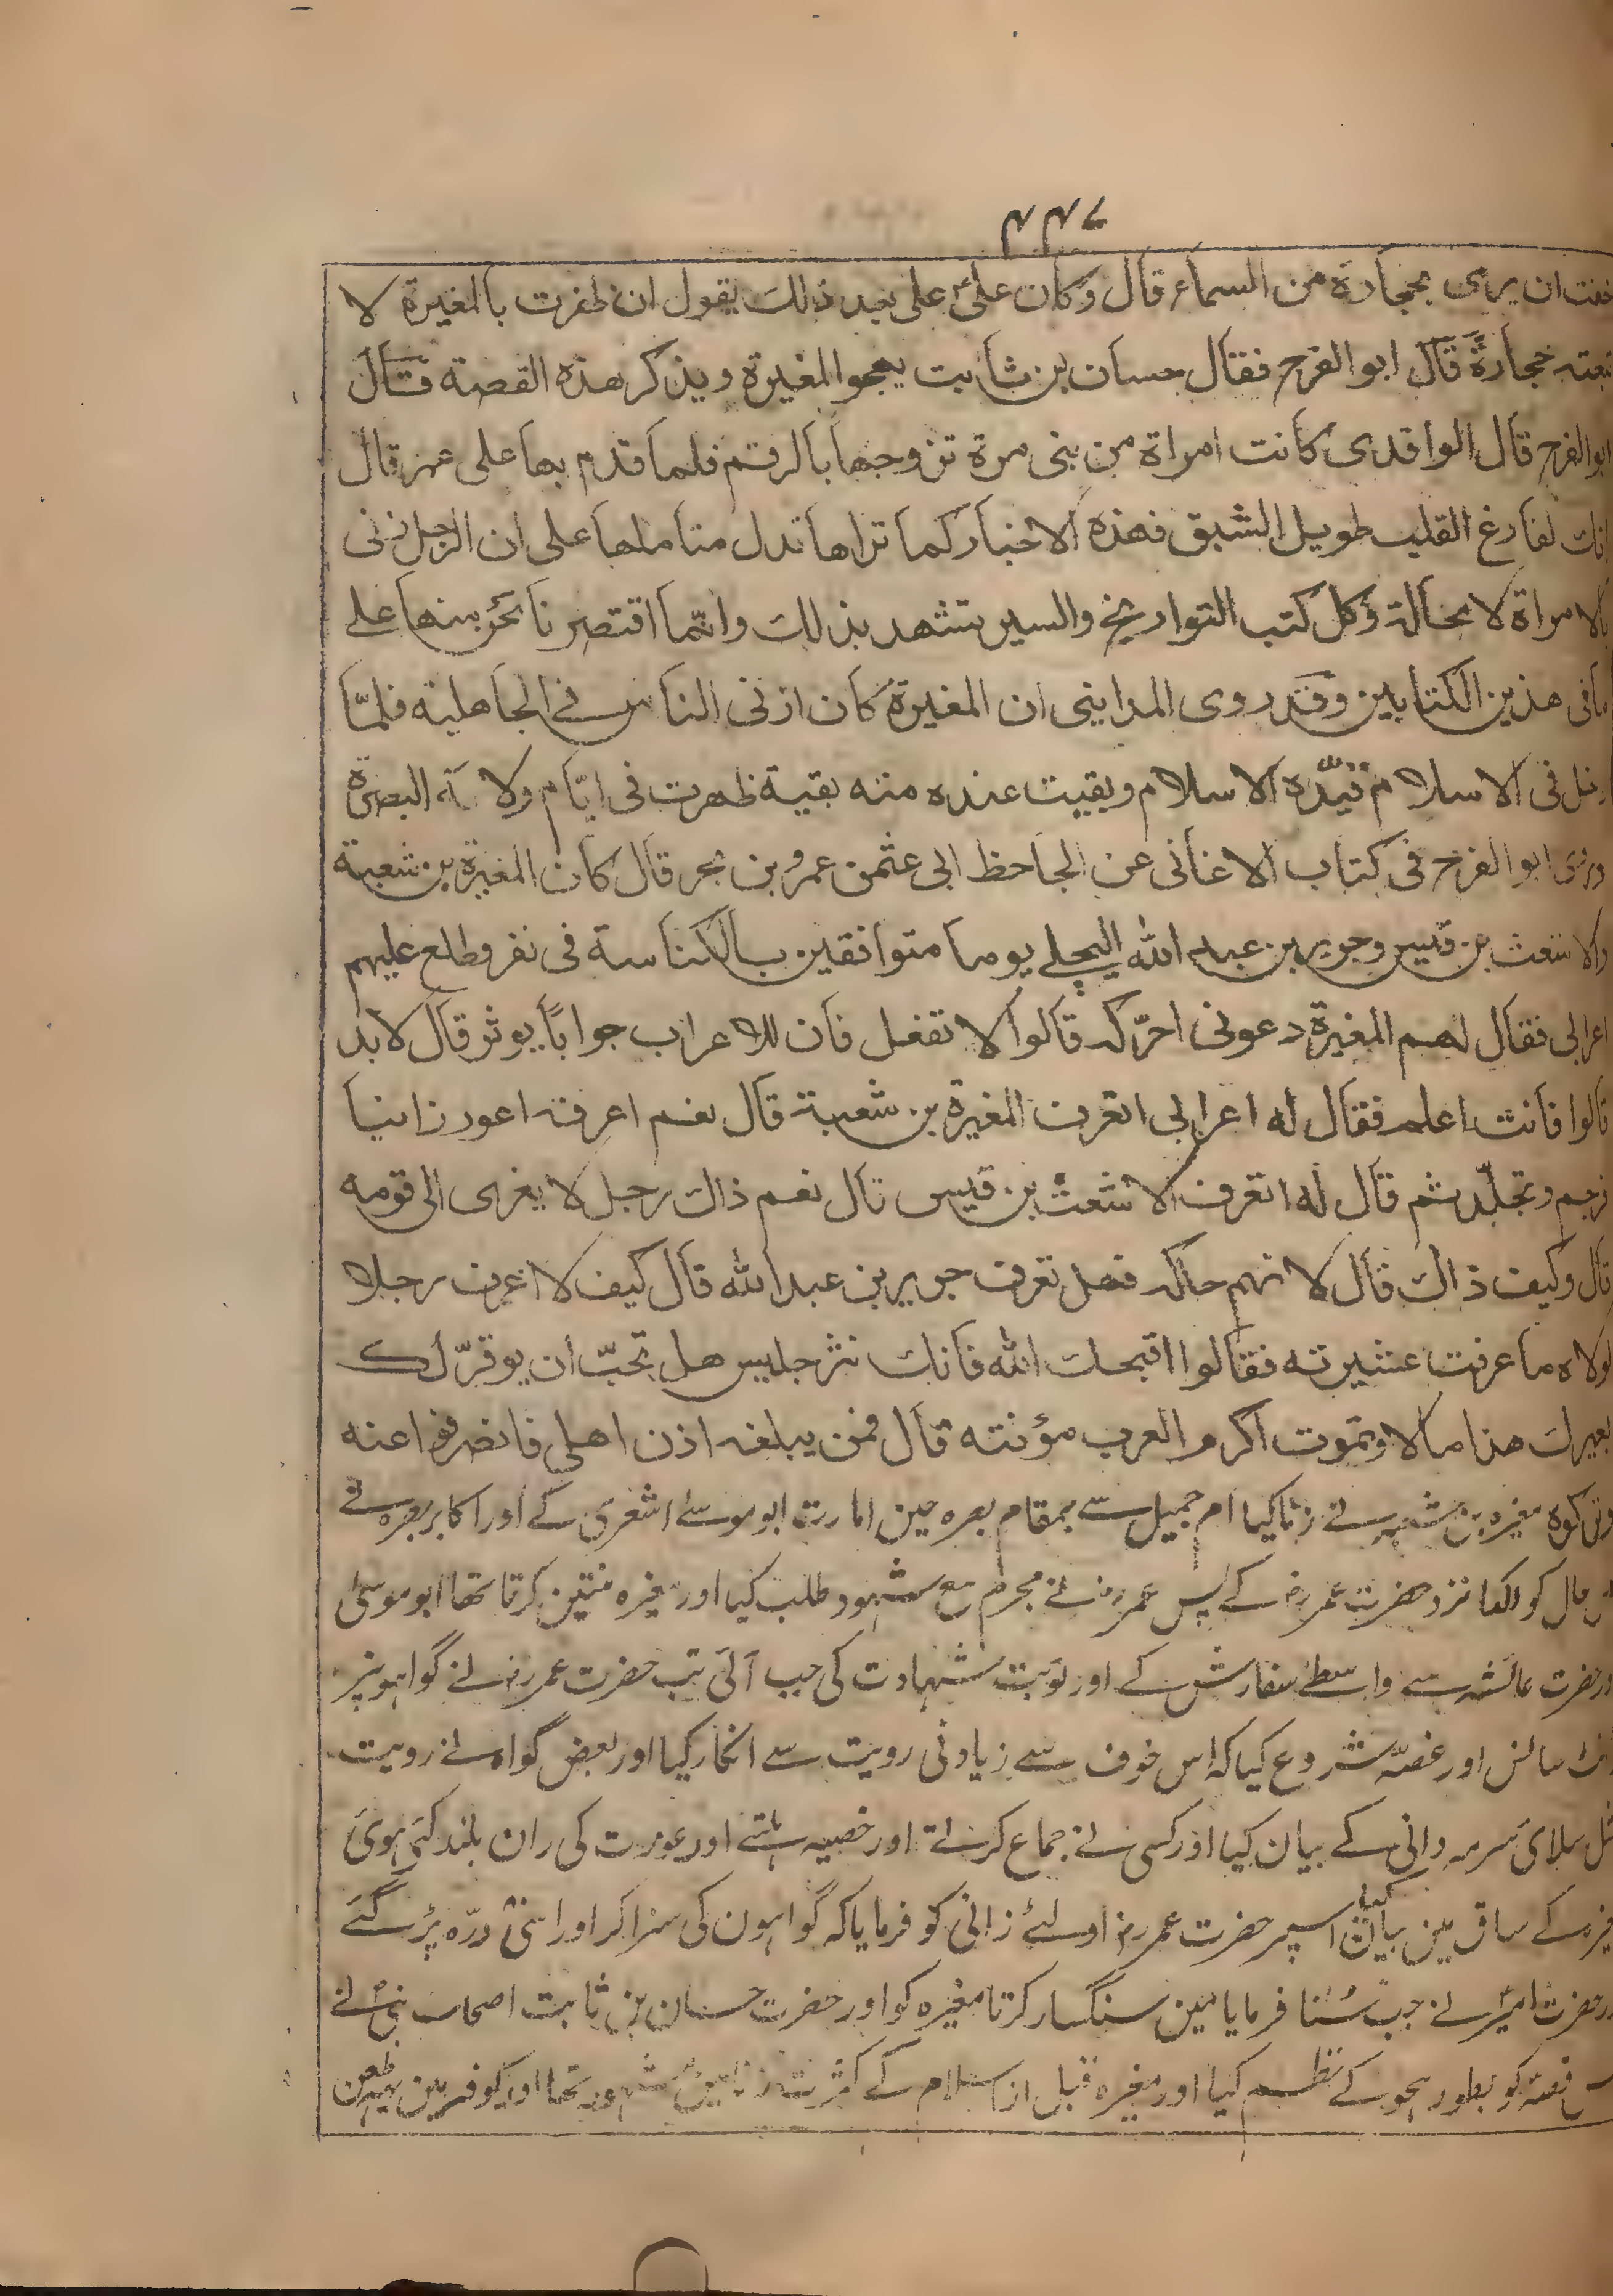 ۴۴۷
خفت ان يرمى بحجارة من السماء قال وكان علىؑ على بعد ذلك يقول ان ظفرت بالمغيرة لا
تبعته حجارةً قال ابو الفرج فقال حسان بن ثابت يهجو المغيرة ويذكر هذه القصة قال
ابو الفرج قال الواقدى كانت امراة من بنى مرة تزوجها بالرقم فلما قدم بها على عمر قال
انك لفارغ القلب طويل الشبق فهذه الاخبار كما تراها تدل متاملها على ان الرجل زنى
بالامراة لا محالة وكل كتب التواريخ والسير تشهد بذلك وانّما اقتصرنا نحن منها على
مافى هذين الكتابين وقد روى المداينى ان المغيرة كان ازنى الناس فى الجاهلية فلمّا
دخل فى الاسلام قيّده الاسلام وبقيت عنده منه بقية ظهرت فى ايّام ولاية البصرة
وروى ابو الفرج فى كتاب الاغانى عن الجاحظ ابى عثمن عمرو بن بحر قال كان المغيرة بن شعبة
والاشعث بن قيس وجرير بن عبد الله البجلى يوما متوافقين بالكناسة فى نفر وطلع عليهم
اعرابى فقال لهم المغيرة دعونى احرّكه قالوا لا تفعل فان للاعراب جواباً يوثر قال لابد
قالوا فانت اعلم فقال له اعرابى اتعرف المغيرة بن شعبة قال نعم اعرفه اعور زانيا
فرجم وتجلّد ثم قال له اتعرف الاشعث بن قيس قال نعم ذاك رجل لا يغرى الى قومه
قال وكيف ذاك قال لانهم حاكه فهل تعرف جرير بن عبد الله قال كيف لا اعرف رجلا
لولاه ما عرفت عشيرته فقالوا اقبحك الله فانك شر جليس هل تحبّ ان يوقرّ لك
بعيرك هذا مالا وتموت اكرم العرب مؤنته قال فمن يبلغه اذن اهلى فانصرفوا عنه
مغيره بن شعبه نے زنا كيا ام جميل سے بمقام بصره حين امارت ابو موسےٰ اشعرى كے اور اكابر بصره نے
حال كو لكھا نزد حضرت عمررض كے پس عمررض نے مجرم مع شہود طلب كيا اور مغيره منتين كرتا تھا ابو موسىٰ
اور حضرت عائشہ سے واسطے سفارش كے اور نوبت شہادت كى جب آئى تب حضرت عمررض نے گواہونپر
اور غصّہ شروع كيا كہ اس خوف سے زيادنى رويت سے انكار كيا اور بعض گواہ نے رويت
مثل سلائ سرمہ دانى كے بيان كيا اور كسى نے جماع كرتے اور خصيہ ہلتے اور عورت كى ران بلند كئے ہوئ
مغيره كے ساق مين بيان كيا اسپر حضرت عمررض اولئے زانى كو فرمايا كہ گواہون كى سزا كر اور اسّى درّه پڑے گئے
اور حضرت اميرؑ نے جب سُنا فرمايا مين سنگسار كرتا مغيره كو اور حضرت حسان بن ثابت اصحاب نبىؐ نے
اس قصّہ كو بطور ہجو كے نظم كيا اور مغيره قبل از اسلام كے كثرت زنا مين مشہور تھا اور كوفہ مين بھى طعن